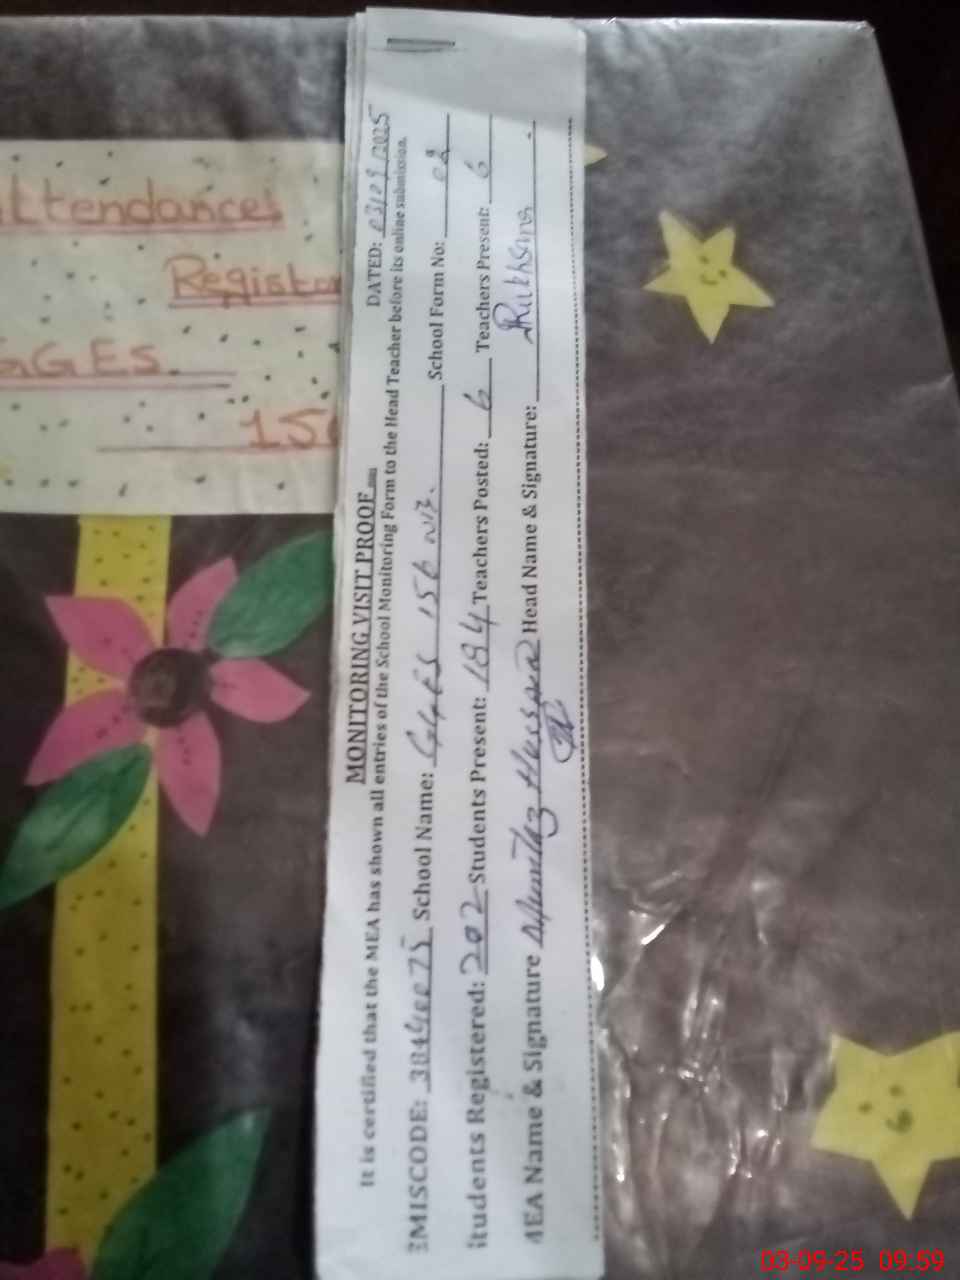 Attendances
Register
GGES.
156
MONITORING VISIT PROOF
DATED: 03/09/2025
It is certified that the MEA has shown all entries of the School Monitoring Form to the Head Teacher before its online submission.
EMISCODE: 38440075 School Name: GGES 156 NB. School Form No: 02
Students Registered: 202 Students Present: 184 Teachers Posted: 6 Teachers Present: 6
MEA Name & Signature Mumtaz Hussain Head Name & Signature: Rukhsana
03-09-25 09:59